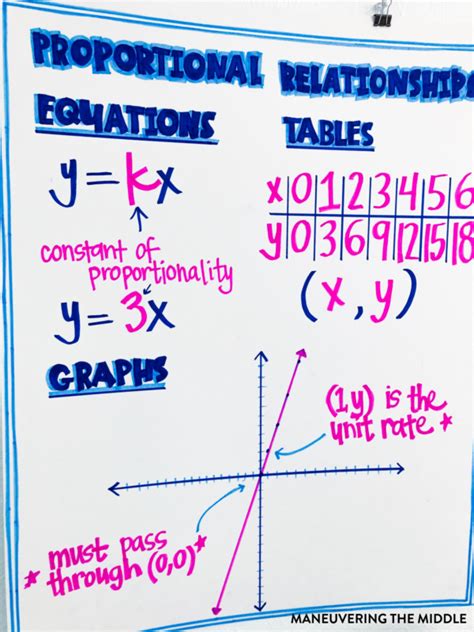 PROPORTIONAL RELATIONSHIPS
EQUATIONS
y=kx
constant of
proportionality
y=3x
TABLES
x|0|1|2|3|4|5|6
y|0|3|6|9|12|15|18
(x,y)
GRAPHS
(1,y) is the
unit rate *
must pass
* through (0,0)*
MANEUVERING THE MIDDLE